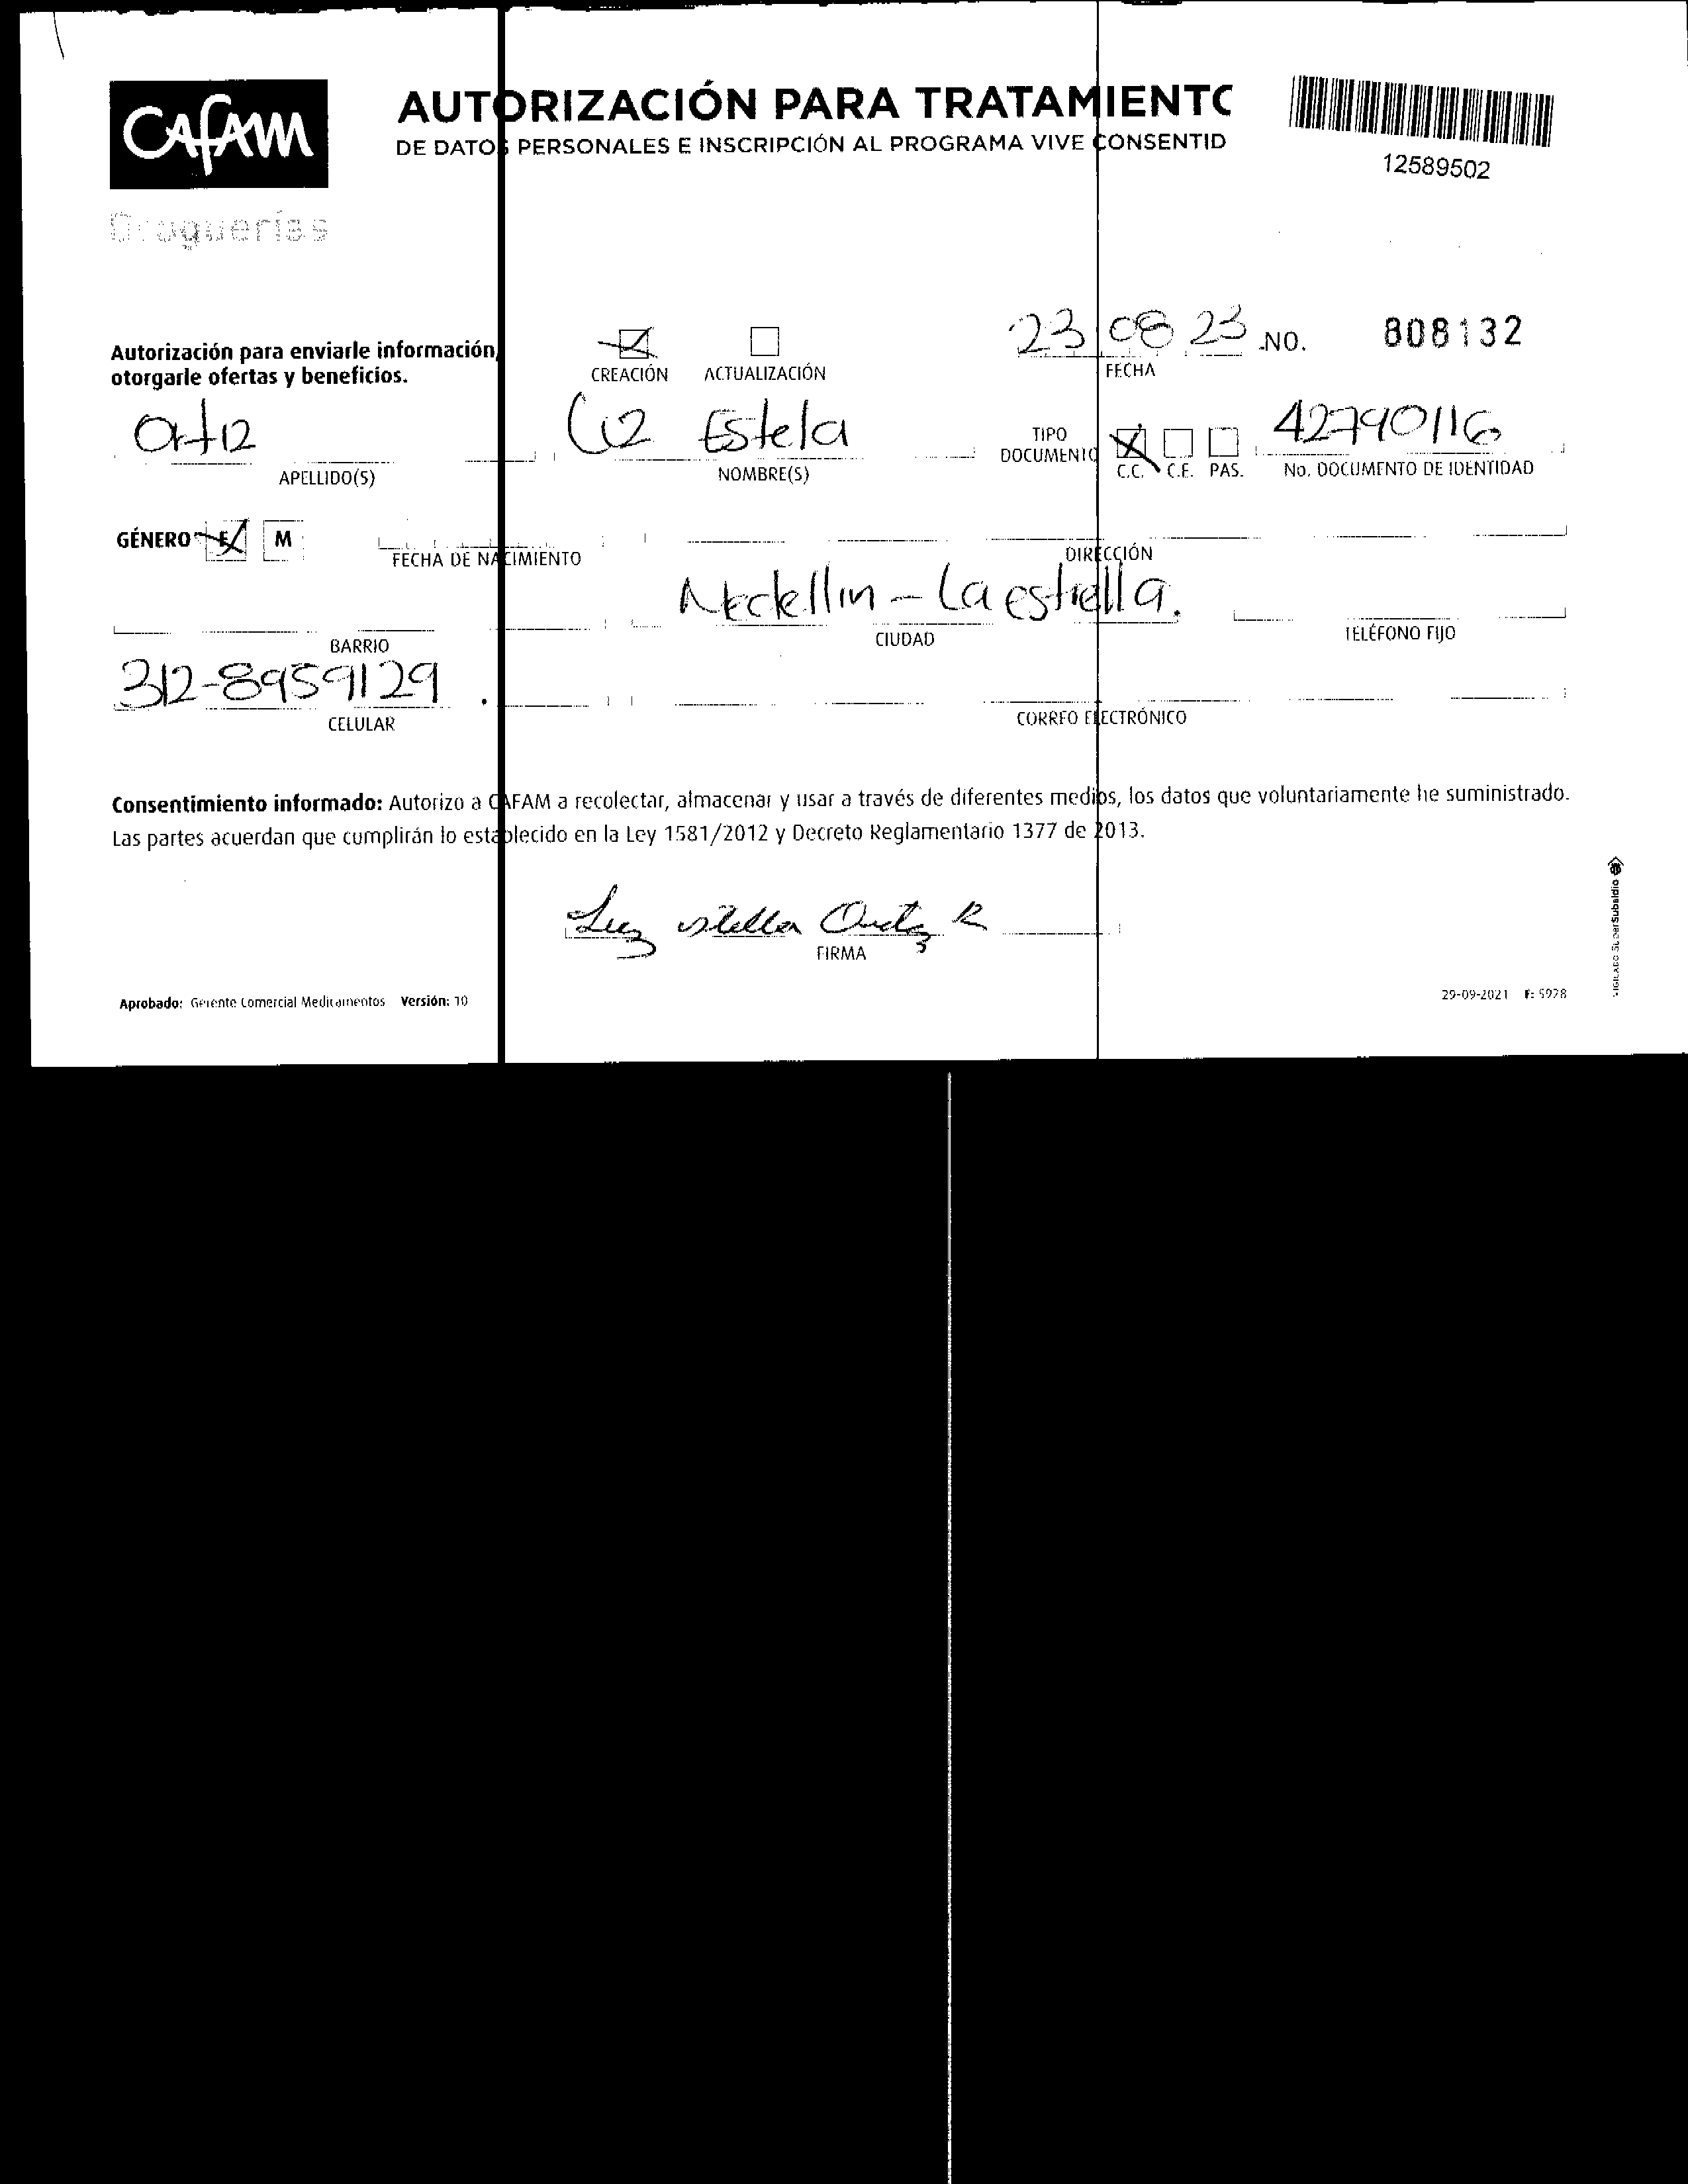 CAFAM
Droguerías
AUTORIZACIÓN PARA TRATAMIENTO
DE DATOS PERSONALES E INSCRIPCIÓN AL PROGRAMA VIVE CONSENTID
12589502
Autorización para enviarle información,
otorgarle ofertas y beneficios.
CREACIÓN ACTUALIZACIÓN
23 08 23 NO. 808132
FECHA
Ortiz Luz Estela 42790116
APELLIDO(S) NOMBRE(S) TIPO DOCUMENTO C.C. C.E. PAS. No. DOCUMENTO DE IDENTIDAD
GÉNERO F M
FECHA DE NACIMIENTO DIRECCIÓN
Medellin - La estrella.
BARRIO CIUDAD TELÉFONO FIJO
312-8959129
CELULAR CORREO ELECTRÓNICO
Consentimiento informado: Autorizo a CAFAM a recolectar, almacenar y usar a través de diferentes medios, los datos que voluntariamente he suministrado.
Las partes acuerdan que cumplirán lo establecido en la Ley 1581/2012 y Decreto Reglamentario 1377 de 2013.
Luz Stella Ortiz R
FIRMA
Aprobado: Gerente Comercial Medicamentos Versión: 10
29-09-2021 F: 5928
VIGILADO SuperSubsidio